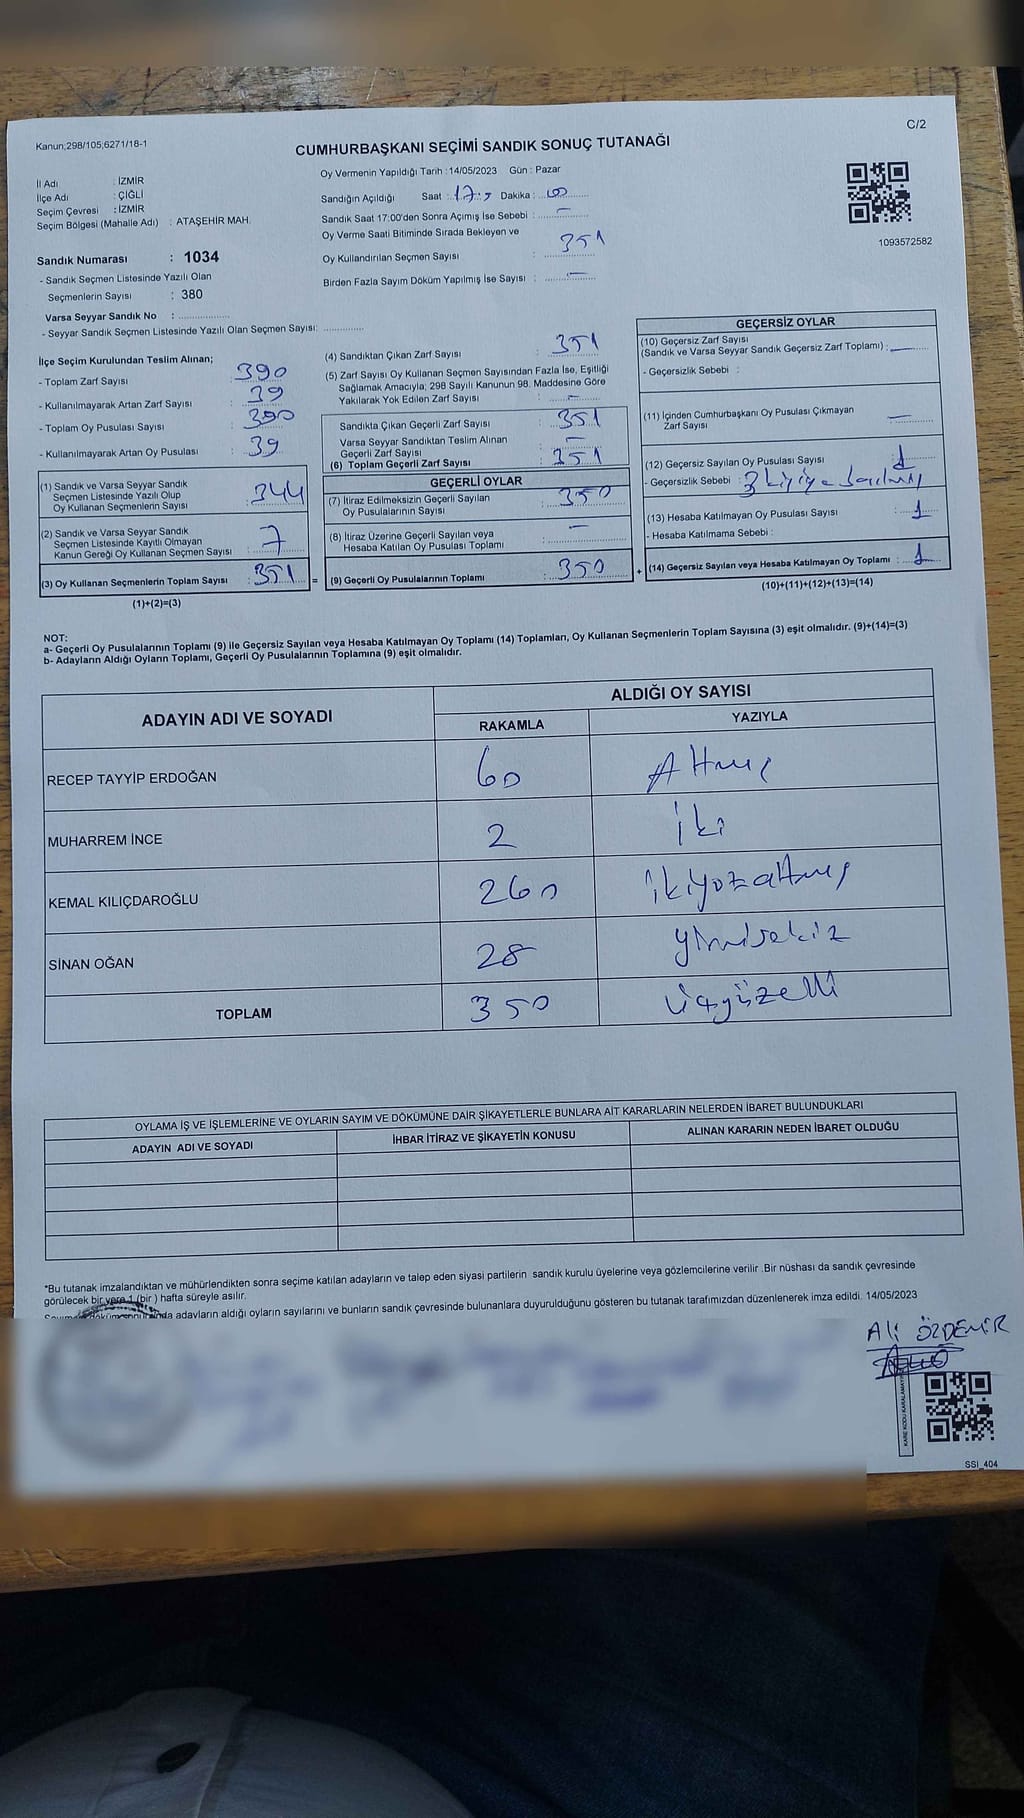 Kanun;298/105;6271/18-1
C/2
CUMHURBAŞKANI SEÇİMİ SANDIK SONUÇ TUTANAĞI
İl Adı : İZMİR
İlçe Adı : ÇİĞLİ
Seçim Çevresi : İZMİR
Seçim Bölgesi (Mahalle Adı) : ATAŞEHİR MAH.
Sandık Numarası : 1034
- Sandık Seçmen Listesinde Yazılı Olan
Seçmenlerin Sayısı : 380
Varsa Seyyar Sandık No : ..................
- Seyyar Sandık Seçmen Listesinde Yazılı Olan Seçmen Sayısı: ..............
Oy Vermenin Yapıldığı Tarih : 14/05/2023 Gün : Pazar
Sandığın Açıldığı Saat : 17 Dakika : 00
Sandık Saat 17:00'den Sonra Açımış İse Sebebi : –
Oy Verme Saati Bitiminde Sırada Bekleyen ve
Oy Kullandırılan Seçmen Sayısı : 351
Birden Fazla Sayım Döküm Yapılmış İse Sayısı : –
1093572582
İlçe Seçim Kurulundan Teslim Alınan;
- Toplam Zarf Sayısı : 390
- Kullanılmayarak Artan Zarf Sayısı : 39
- Toplam Oy Pusulası Sayısı : 390
- Kullanılmayarak Artan Oy Pusulası : 39
(1) Sandık ve Varsa Seyyar Sandık
Seçmen Listesinde Yazılı Olup
Oy Kullanan Seçmenlerin Sayısı : 344
(2) Sandık ve Varsa Seyyar Sandık
Seçmen Listesinde Kayıtlı Olmayan
Kanun Gereği Oy Kullanan Seçmen Sayısı : 7
(3) Oy Kullanan Seçmenlerin Toplam Sayısı : 351 =
(1)+(2)=(3)
(4) Sandıktan Çıkan Zarf Sayısı : 351
(5) Zarf Sayısı Oy Kullanan Seçmen Sayısından Fazla İse, Eşitliği
Sağlamak Amacıyla; 298 Sayılı Kanunun 98. Maddesine Göre
Yakılarak Yok Edilen Zarf Sayısı : –
Sandıkta Çıkan Geçerli Zarf Sayısı : 351
Varsa Seyyar Sandıktan Teslim Alınan
Geçerli Zarf Sayısı : –
(6) Toplam Geçerli Zarf Sayısı : 351
GEÇERLİ OYLAR
(7) İtiraz Edilmeksizin Geçerli Sayılan
Oy Pusulalarının Sayısı : 350
(8) İtiraz Üzerine Geçerli Sayılan veya
Hesaba Katılan Oy Pusulası Toplamı : –
(9) Geçerli Oy Pusulalarının Toplamı : 350 +
GEÇERSİZ OYLAR
(10) Geçersiz Zarf Sayısı
(Sandık ve Varsa Seyyar Sandık Geçersiz Zarf Toplamı) : –
- Geçersizlik Sebebi :
(11) İçinden Cumhurbaşkanı Oy Pusulası Çıkmayan
Zarf Sayısı : –
(12) Geçersiz Sayılan Oy Pusulası Sayısı : 1
- Geçersizlik Sebebi : 3 kişiye
(13) Hesaba Katılmayan Oy Pusulası Sayısı : 1
- Hesaba Katılmama Sebebi :
(14) Geçersiz Sayılan veya Hesaba Katılmayan Oy Toplamı : 1
(10)+(11)+(12)+(13)=(14)
NOT:
a- Geçerli Oy Pusulalarının Toplamı (9) ile Geçersiz Sayılan veya Hesaba Katılmayan Oy Toplamı (14) Toplamları, Oy Kullanan Seçmenlerin Toplam Sayısına (3) eşit olmalıdır. (9)+(14)=(3)
b- Adayların Aldığı Oyların Toplamı, Geçerli Oy Pusulalarının Toplamına (9) eşit olmalıdır.
ADAYIN ADI VE SOYADI
ALDIĞI OY SAYISI
RAKAMLA YAZIYLA
RECEP TAYYİP ERDOĞAN 60 Altmış
MUHARREM İNCE 2 iki
KEMAL KILIÇDAROĞLU 260 ikiyüzaltmış
SİNAN OĞAN 28 yirmisekiz
TOPLAM 350 üçyüzelli
OYLAMA İŞ VE İŞLEMLERİNE VE OYLARIN SAYIM VE DÖKÜMÜNE DAİR ŞİKAYETLERLE BUNLARA AİT KARARLARIN NELERDEN İBARET BULUNDUKLARI
ADAYIN ADI VE SOYADI İHBAR İTİRAZ VE ŞİKAYETİN KONUSU ALINAN KARARIN NEDEN İBARET OLDUĞU
*Bu tutanak imzalandıktan ve mühürlendikten sonra seçime katılan adayların ve talep eden siyasi partilerin sandık kurulu üyelerine veya gözlemcilerine verilir .Bir nüshası da sandık çevresinde
görülecek bir yere 1 (bir ) hafta süreyle asılır.
adayların aldığı oyların sayılarını ve bunların sandık çevresinde bulunanlara duyurulduğunu gösteren bu tutanak tarafımızdan düzenlenerek imza edildi. 14/05/2023
Ali ÖZDEMİR
KARE KODU KARALAMAYINIZ
SSI_404